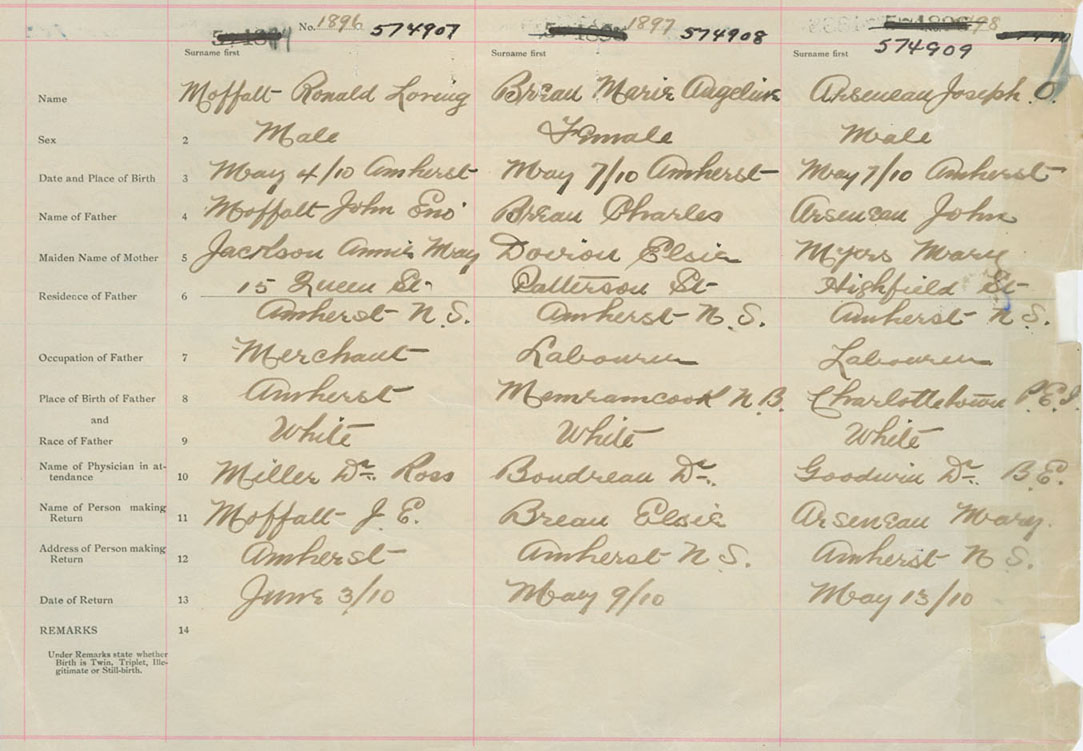 No. 1896 574907 1897 574908 574909
Surname first Surname first Surname first
Name Moffatt Ronald Loving Breau Marie Angeline Arseneau Joseph O.
Sex 2 Male Female Male
Date and Place of Birth 3 May 4/10 Amherst May 7/10 Amherst May 7/10 Amherst
Name of Father 4 Moffatt John Eno Breau Charles Arseneau John
Maiden Name of Mother 5 Jackson Annie May Doviou Elsie Myers Mary
Residence of Father 6 15 Queen St. Patterson St Highfield St
Amherst N.S. Amherst N.S. Amherst N.S.
Occupation of Father 7 Merchant Labourer Labourer
Place of Birth of Father 8 Amherst Memramcook N.B. Charlottetown P.E.I.
and
Race of Father 9 White White White
Name of Physician in at-
tendance 10 Miller Dr. Ross Boudreau Dr. Goodwin Dr. B.E.
Name of Person making
Return 11 Moffatt J.E. Breau Elsie Arseneau Mary.
Address of Person making
Return 12 Amherst Amherst N.S. Amherst N.S.
Date of Return 13 June 3/10 May 9/10 May 13/10
REMARKS 14
Under Remarks state whether
Birth is Twin, Triplet, Ille-
gitimate or Still-birth.